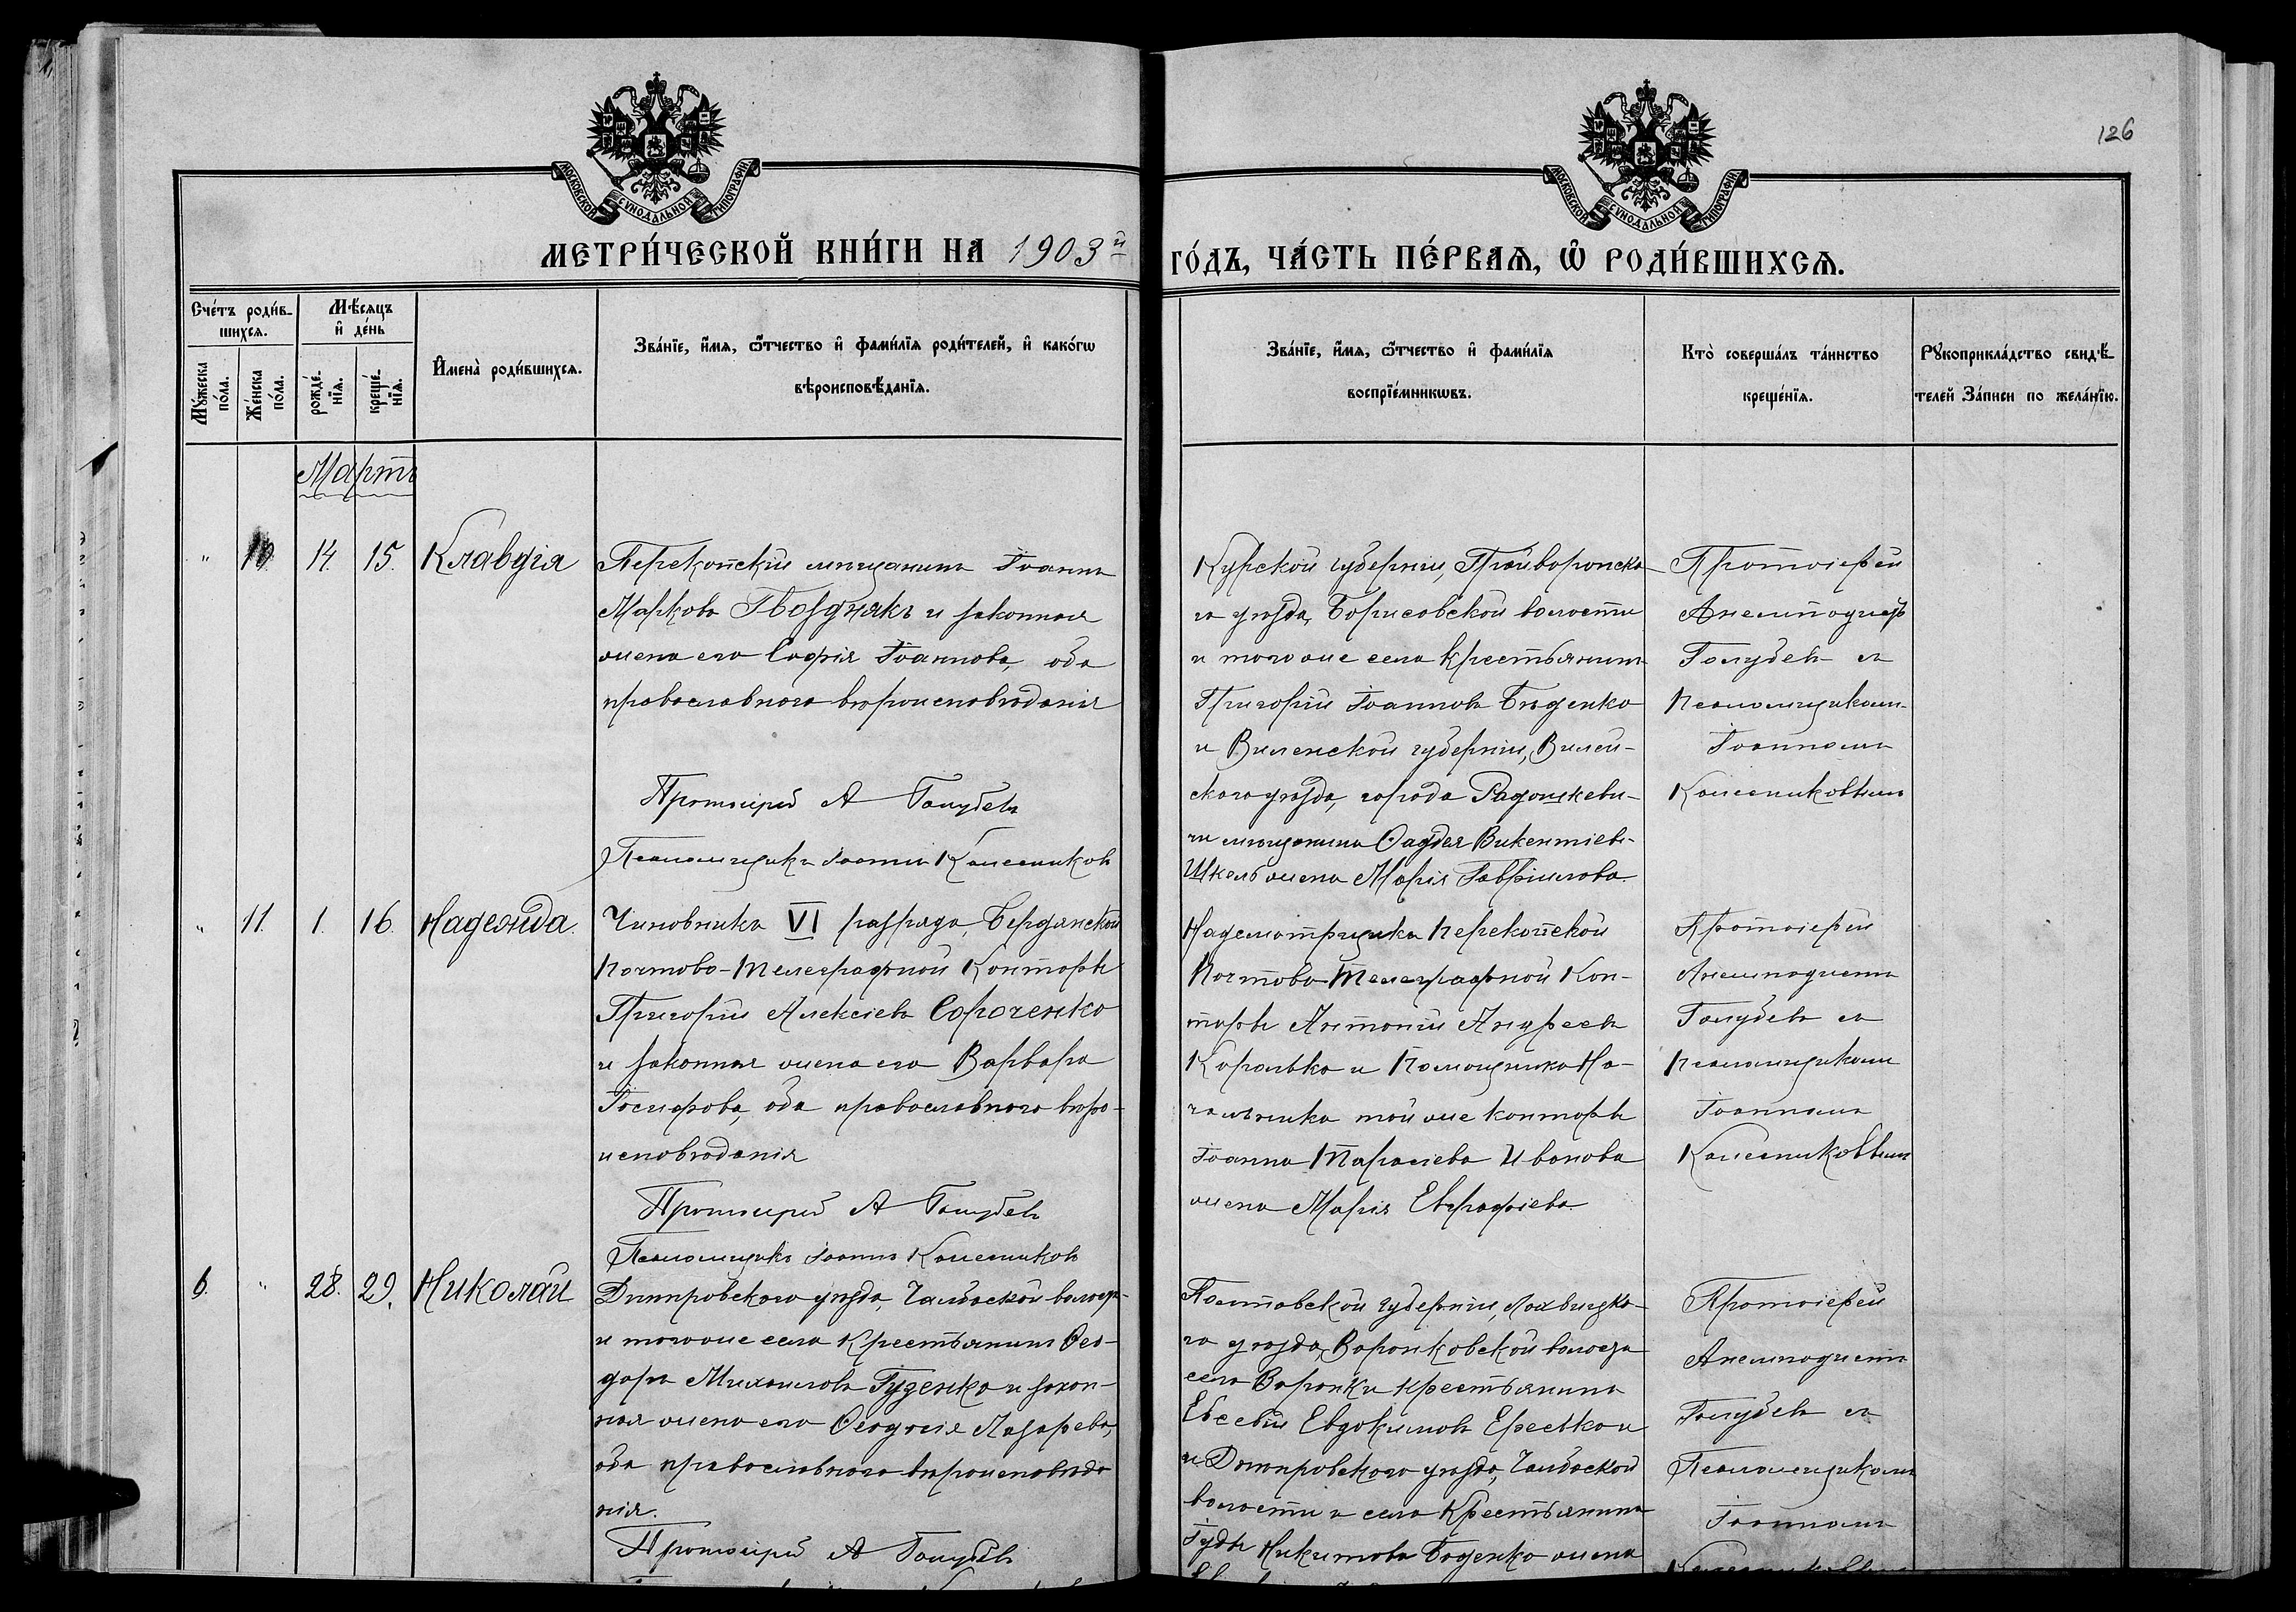 126
МОСКОВСКОЙ СѴНОДАЛЬНОЙ ТИПОГРАФІИ
МОСКОВСКОЙ СѴНОДАЛЬНОЙ ТИПОГРАФІИ
МЕТРИ́ЧЕСКОЙ КНИ́ГИ НА 1903й ГО́ДЪ, ЧА́СТЬ ПЕ́РВАѦ, Ѡ҆ РОДИ́ВШИХСѦ.
Сче́тъ роди́в-
шихсѧ.
Мꙋ́жеска по́ла.
Же́нска по́ла.
Мѣ́сѧцъ
и҆ де́нь
рожде́-нїѧ.
креще́-нїѧ.
И҆мена̀ роди́вшихсѧ.
Зва́нїе, и҆́мѧ, ѻ҆́тчество и҆ фами́лїѧ роди́телей, и҆ како́гѡ
вѣроисповѣ́данїѧ.
Зва́нїе, и҆́мѧ, ѻ҆́тчество и҆ фами́лїѧ
воспрїе́мникѡвъ.
Кто̀ соверша́лъ та́инство
креще́нїѧ.
Рꙋкоприкла́дство свидѣ́-
телей За́писи по жела́нїю.
Мартъ
" 10. 14. 15. Клавдія
Перекопскій мѣщанинъ Іоаннъ
Марковъ Гвозднякъ и законная
жена его Софія Іоаннова, оба
православнаго вѣроисповѣданія
Протоіерей А Голубевъ
Псаломщикъ Іоаннъ Колесниковъ
Курской губерніи, Грайворонска-
го уѣзда, Борисовской волости
и того же села крестьянинъ
Григорій Іоанновъ Бѣденко
и Виленской губерніи, Вилей-
скаго уѣзда, города Радошкеви-
чи мѣщанина Фаддея Викентіева
Шкель жена Марія Гавріилова.
Протоіерей
Анемподистъ
Голубевъ съ
Псаломщикомъ
Іоанномъ
Колесниковымъ
" 11. 1. 16. Надежда.
Чиновникъ VI разряда, Бердянской
Почтово-Телеграфной Конторы
Григорій Алексіевъ Сороченко
и законная жена его Варвара
Іосифова, оба православнаго вѣро-
исповѣданія
Протоіерей А Голубевъ
Псаломщикъ Іоаннъ Колесниковъ
Надсмотрщикъ Перекопской
Почтово-Телеграфной Кон-
торы Антоній Андреевъ
Королько и Помощника На-
чальника той же конторы
Іоанна Тарасіева Иванова
жена Марія Евграфіева.
Протоіерей
Анемподистъ
Голубевъ съ
Псаломщикомъ
Іоанномъ
Колесниковымъ
6. " 28. 29. Николай
Днѣпровского уѣзда, Чалбаской волости
и того же села крестьянинъ Ѳео-
доръ Михаиловъ Гуденко и закон-
ная жена его Ѳеодосія Лазарева,
оба православнаго вѣроисповѣда
нія.
Протоіерей А Голубевъ
Полтавской губерніи, Лохвицка-
го уѣзда, Воронковской волости
села Воронки крестьянинъ
Евсевій Евдокимовъ
и Днѣпровского уѣзда, Чалбаской
волости и села крестьянина
Никитова жена
Протоіерей
Анемподистъ
Голубевъ съ
Псаломщикомъ
Іоанномъ
Колесниковымъ